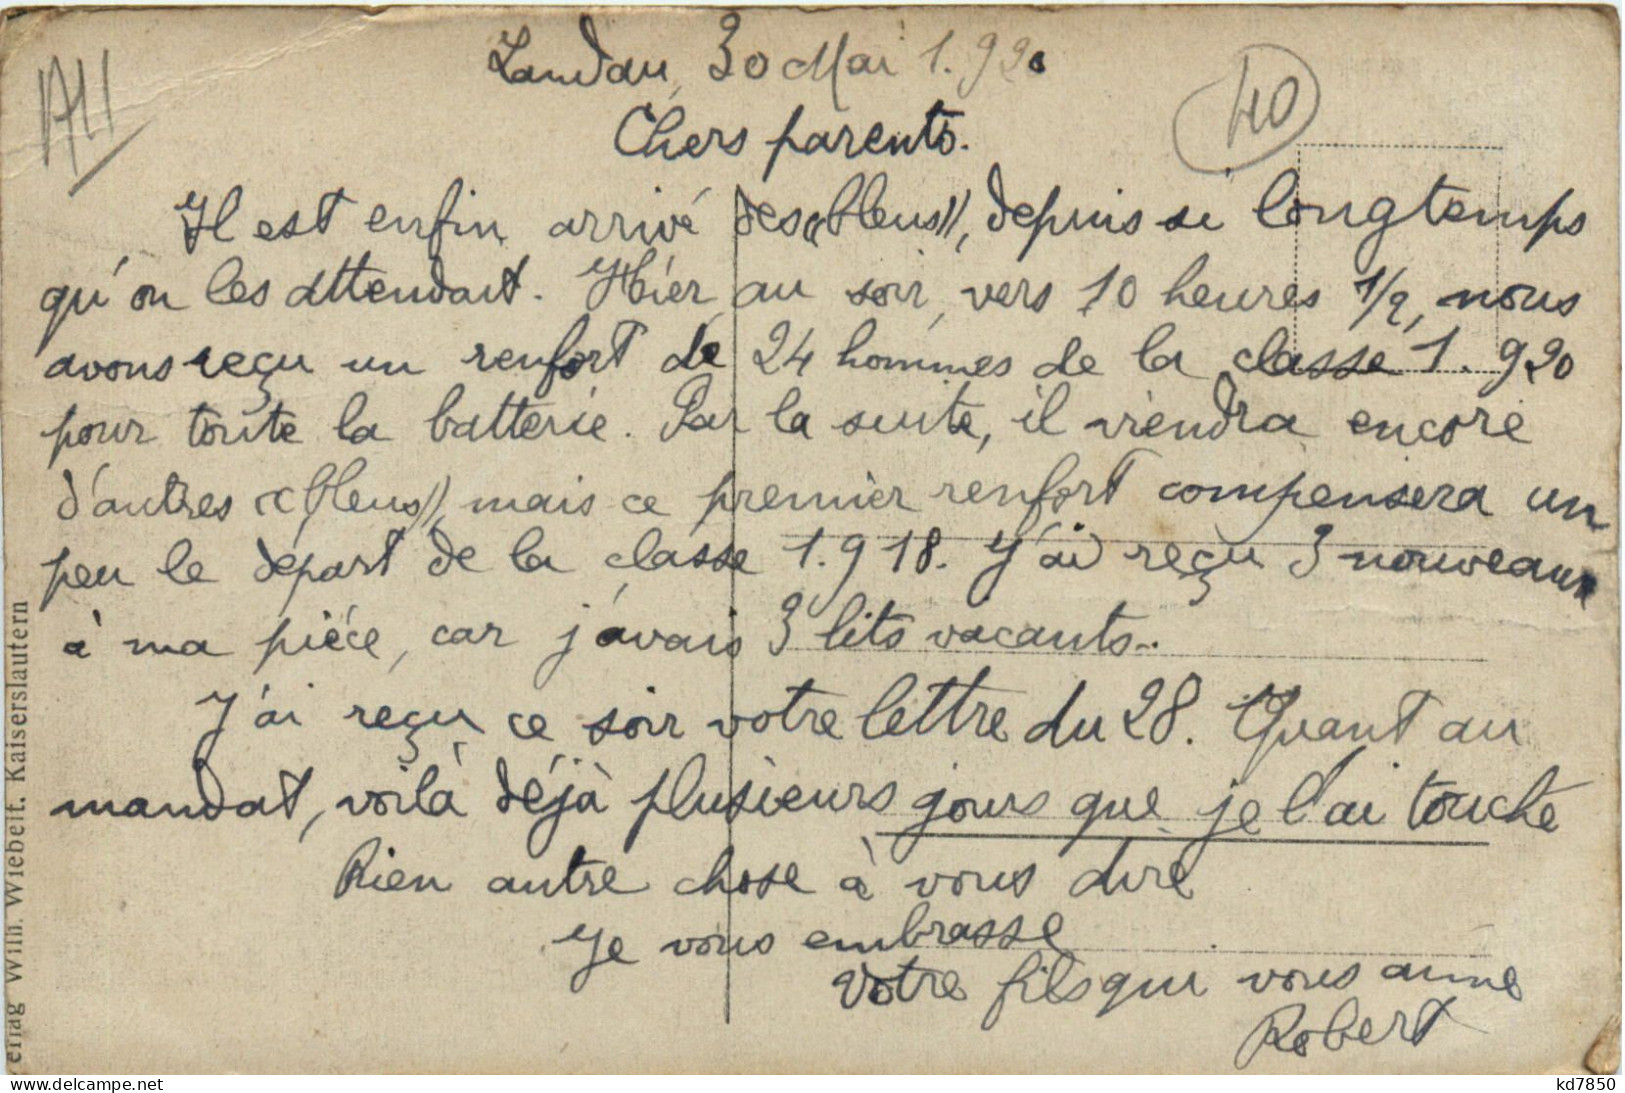 Landau, 30 Mai 1.920
40
Chers parents.
Il est enfin arrivé des «bleus», depuis si longtemps
qu'on les attendait. Hier au soir, vers 10 heures 1/2, nous
avons reçu un renfort de 24 hommes de la classe 1.920
pour toute la batterie. Par la suite, il viendra encore
d'autres «bleus», mais ce premier renfort compensera un
peu le départ de la classe 1.918. J'ai reçu 3 nouveaux
à ma pièce, car j'avais 3 lits vacants..
J'ai reçu ce soir votre lettre du 28. Quant au
mandat, voilà déjà plusieurs jours que je l'ai touché
Rien autre chose à vous dire
Je vous embrasse
Votre fils qui vous aime
Robert
erlag Wilh. Wiebelt. Kaiserslautern
delcampe.net
kd7850